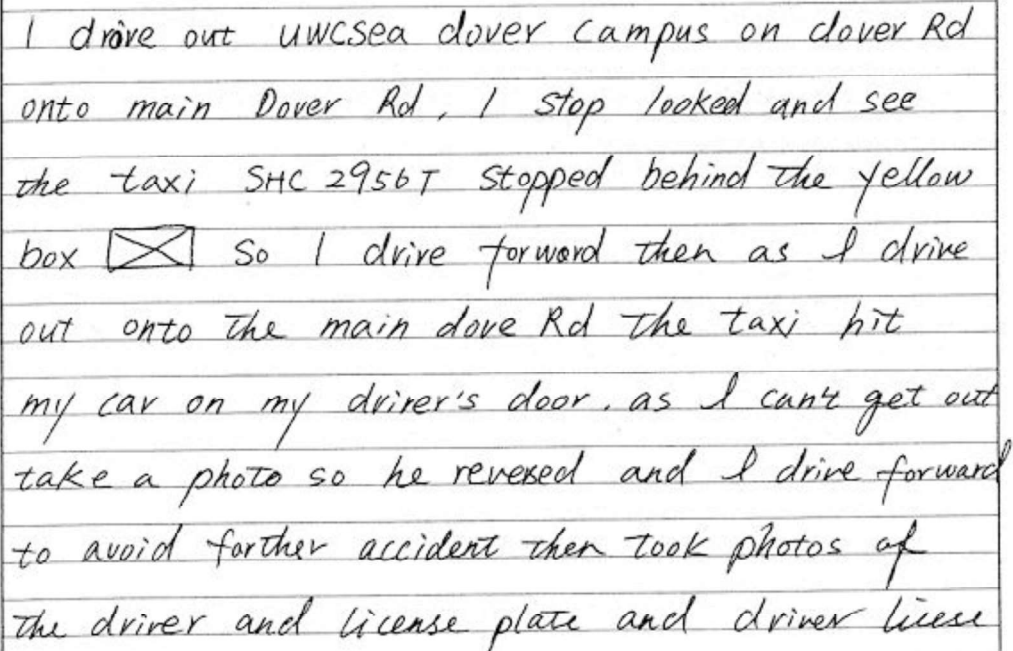 I drove out uwcsea dover campus on dover Rd
onto main Dover Rd, I stop looked and see
the taxi SHC 2956T stopped behind the yellow
box So I drive forword then as I drive
out onto the main dove Rd the taxi hit
my car on my driver's door. as I can't get out
take a photo so he revexed and I drive forward
to avoid farther accident then took photos of
the driver and license plate and driver licese